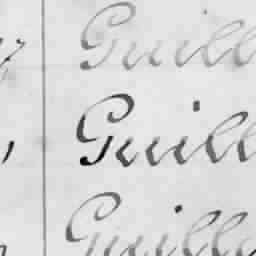 Guill
Guill
Guille